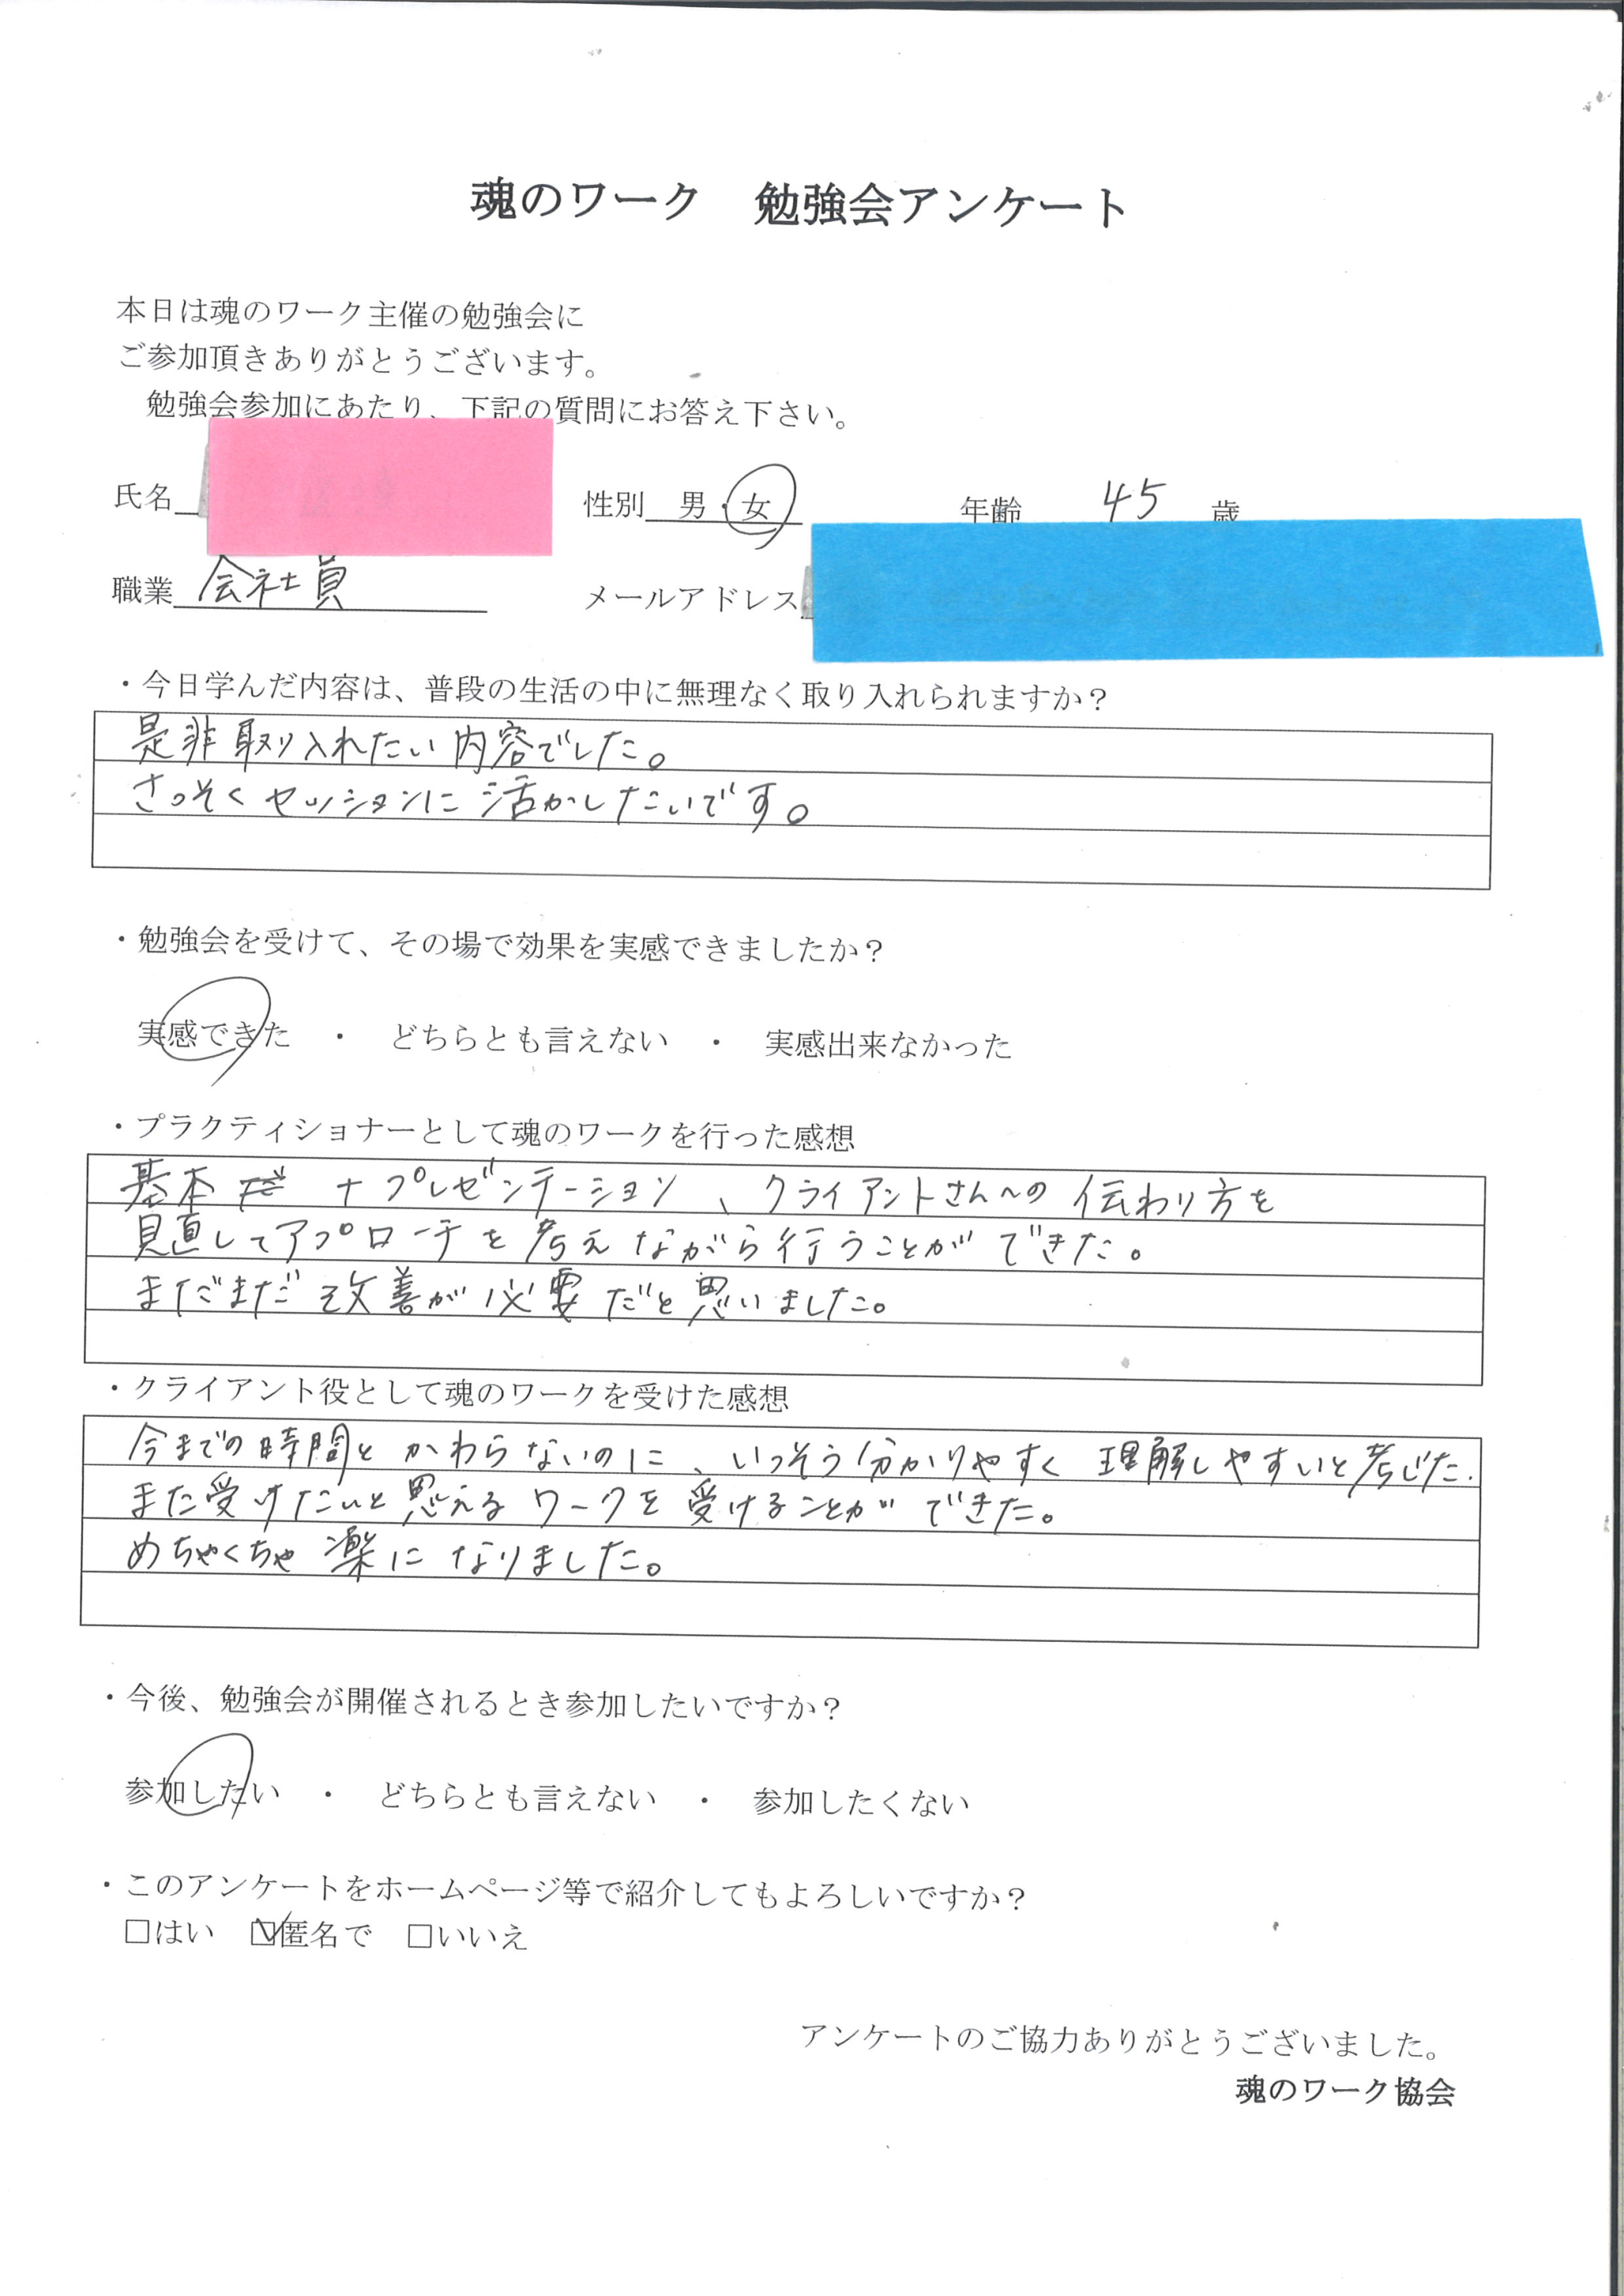 魂のワーク　勉強会アンケート
本日は魂のワーク主催の勉強会に
ご参加頂きありがとうございます。
勉強会参加にあたり、下記の質問にお答え下さい。
氏名 性別 男・女 年齢 45 歳
職業 会社員 メールアドレス
・今日学んだ内容は、普段の生活の中に無理なく取り入れられますか？
是非取り入れたい内容でした。
さっそくセッションに活かしたいです。
・勉強会を受けて、その場で効果を実感できましたか？
実感できた ・ どちらとも言えない ・ 実感出来なかった
・プラクティショナーとして魂のワークを行った感想
基本 + プレゼンテーション、クライアントさんへの伝わり方を
見直してアプローチを考えながら行うことができた。
まだまだ改善が必要だと思いました。
・クライアント役として魂のワークを受けた感想
今までの時間とかわらないのに、いっそう分かりやすく理解しやすいと
また受けたいと思えるワークを受けることができた。
めちゃくちゃ楽になりました。
・今後、勉強会が開催されるとき参加したいですか？
参加したい ・ どちらとも言えない ・ 参加したくない
・このアンケートをホームページ等で紹介してもよろしいですか？
□はい ☑匿名で □いいえ
アンケートのご協力ありがとうございました。
魂のワーク協会